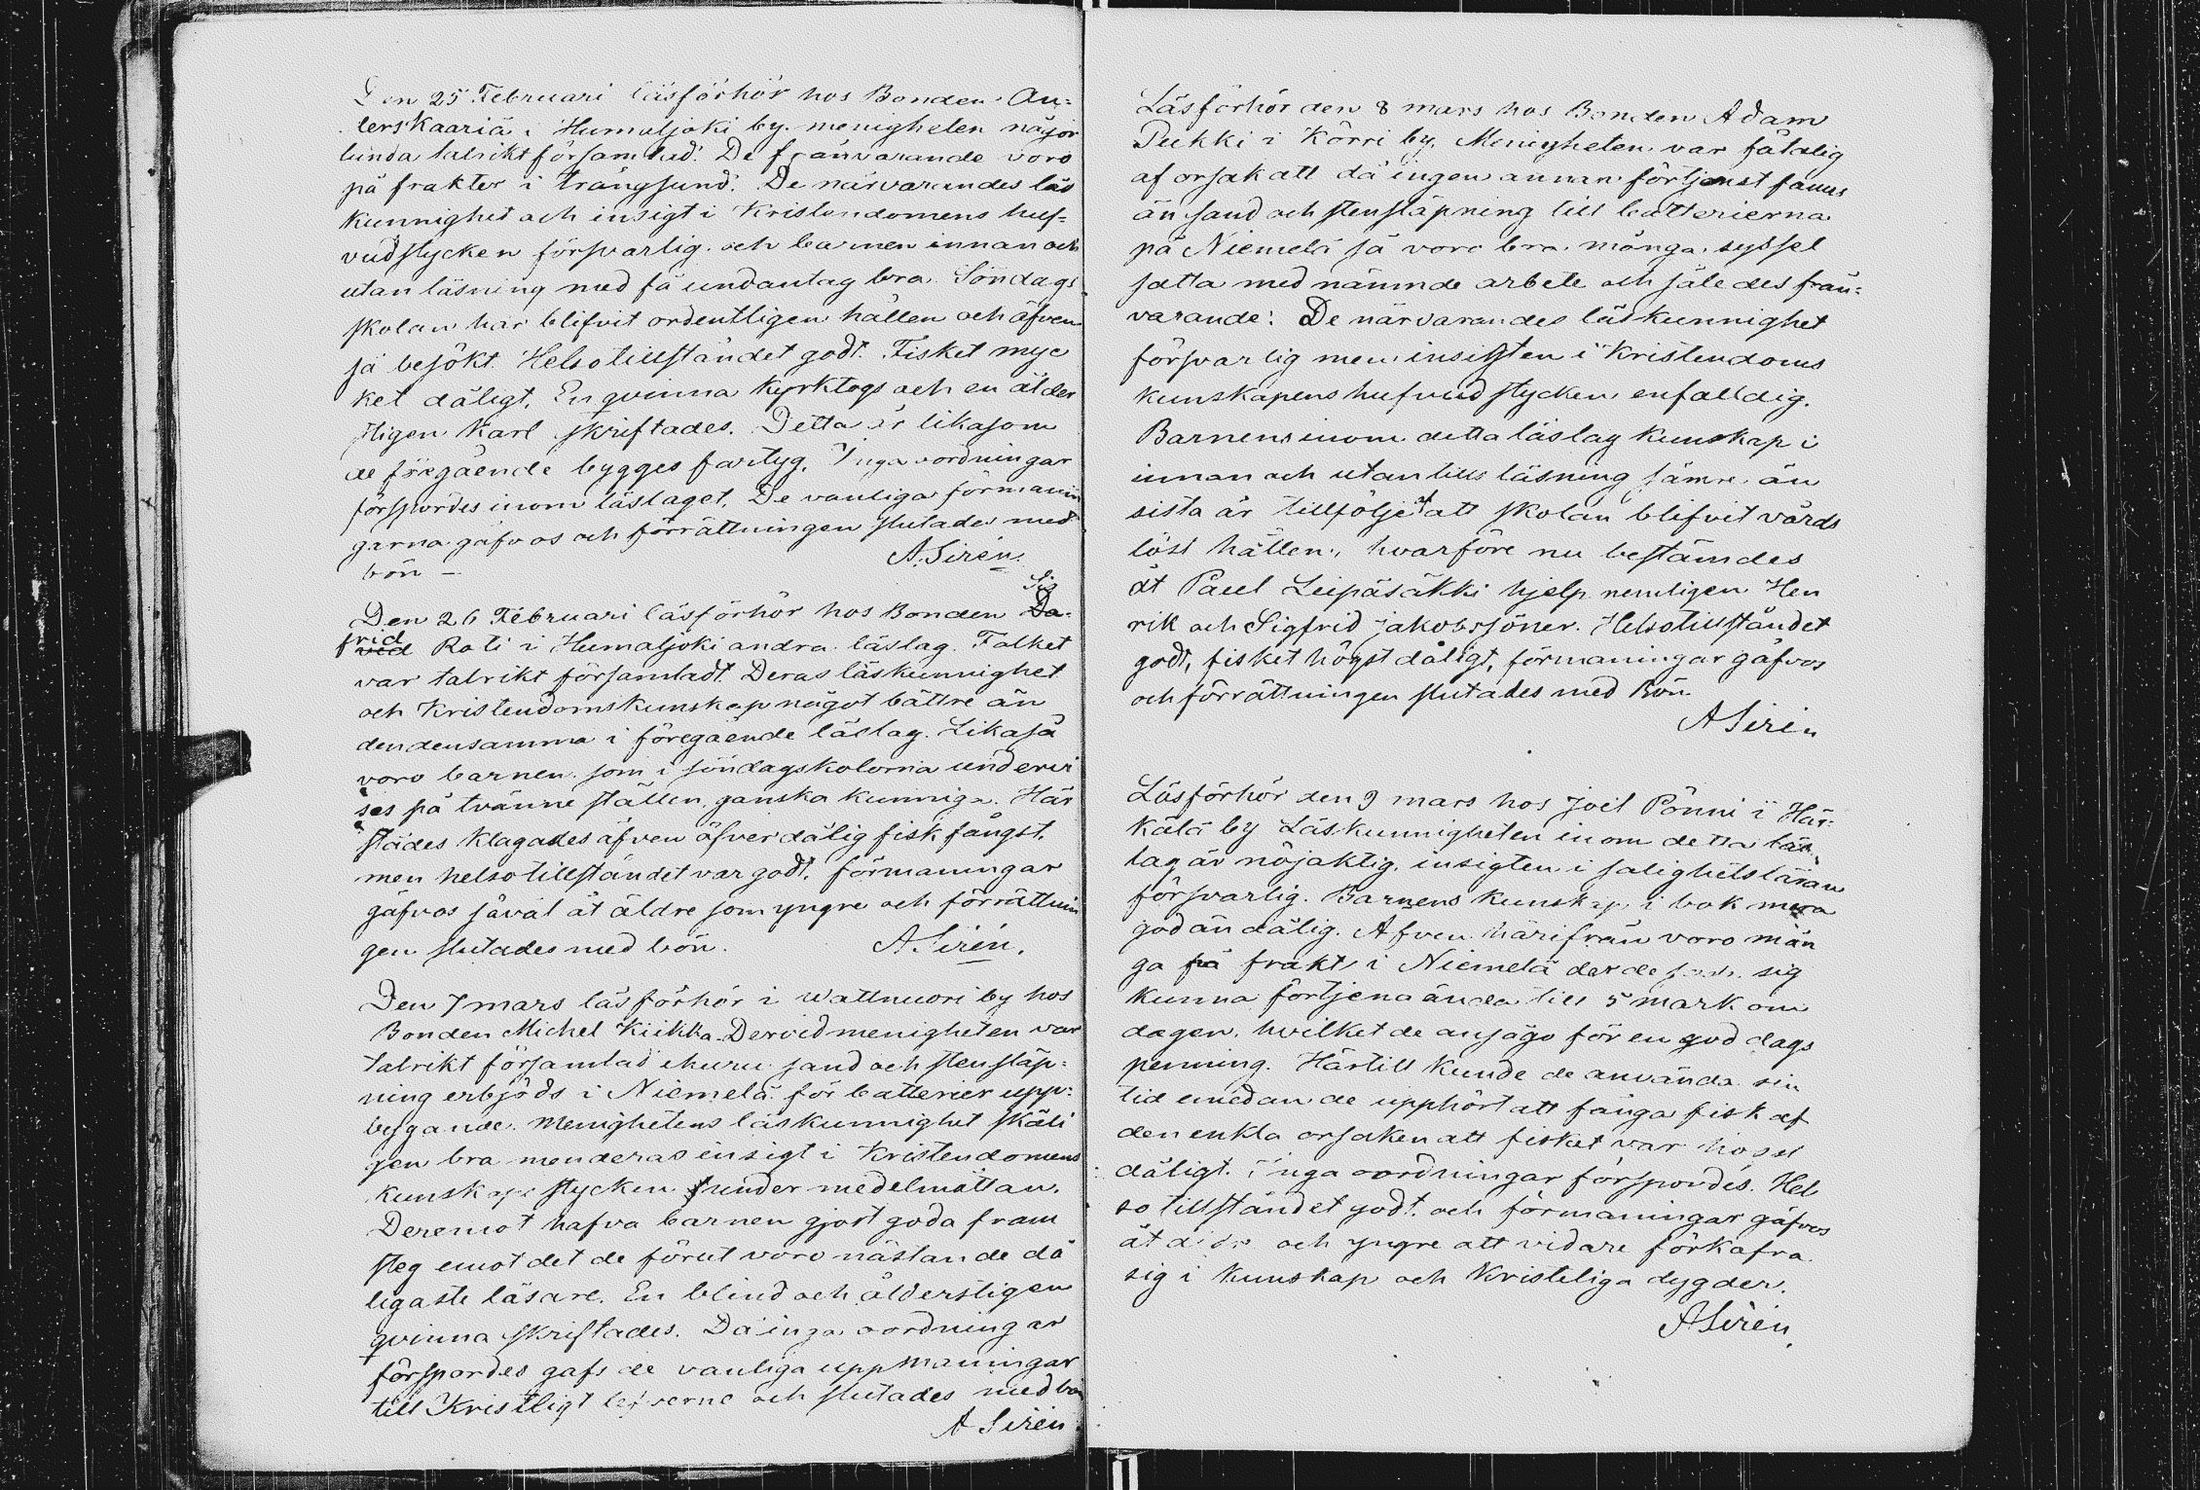 Den 25 Februari läsförhör hos Bonden An-
ders Kaariä i Humaljoki by. menigheten någor
lunda talrikt församlad. De frånvarande voro
på frakter i Trångsund. De närvarandes läs
kunnighet och insigt i Kristendomens huf-
vudstycken försvarlig och barnen innan och
utanläsning med få undantag bra. Söndags
skolan har blifvit ordentligen hållen och äfven
så besökt. Helsotillståndet godt. Fisket myc
ket dåligt. En qvinna kyrktogs och en ålder
stigen Karl skriftades. Detta är likasom
de föregående bygges fartyg. Inga oordningar
förspordes inom läslaget. De vanliga förmanin
garna gåfvos och förrättningen slutades med
bön – A. Sirén.
Sig
Den 26 Februari läsförhör hos Bonden Da-
frid
vid Roti i Humaljoki andra läslag. Folket
var talrikt församladt. Deras läskunnighet
och Kristendomskunskap något bättre än
den densamma i föregående läslag. Likaså
voro barnen som i söndagskolorna undervi
ses på tvänne ställen, ganska kunniga. Här
städes klagades äfven öfver dålig fiskfångst.
men helsotillståndet var godt. förmaningar
gåfvos såväl åt äldre som yngre och förrättnin
gen slutades med bön. A Sirén.
Den 7 mars läsförhör i Wattnuori by hos
Bonden Michel Kiikka. Dervid menigheten var
talrikt församlad ehuru sand och stensläp-
ning erbjöds i Niemelä för batteriers upp-
bygande. Menighetens läskunnighet skäli
gen bra men deras insigt i Kristendomens
kunskaps stycken under medelmåttan.
Deremot hafva barnen gjort goda fram
steg emot det de förut voro nästan de då
ligaste läsare. En blind och ålderstigen
qvinna skriftades. Då inga oordningar
förspordes gafs de vanliga uppmaningar
till Kristligt lefverne och slutades med bön
A Sirén
Läsförhör den 8 mars hos Bonden Adam
Pukki i Körri by. Menigheten var fåtalig
af orsak att då ingen annan förtjenst fanns
än sand och stensläpning till batterierna
på Niemelä så voro bra många syssel
satta med nämnde arbete och således från-
varande. De närvarandes läskunnighet
försvarlig men insigten i Kristendoms
kunskapens hufvudstycken enfaldig.
Barnens inom detta läslag kunskap i
innan och utantills läsning sämre än
sista år tillfölje af att skolan blifvit vårds
löst hållen, hvarföre nu bestämdes
åt Paul Leipäsäkki hjelp nemligen Hen
rik och Sigfrid Jakobssöner. Helsotillståndet
godt, fisket högst dåligt, förmaningar gåfvos
och förrättningen slutades med Bön.
A Sirén
Läsförhör den 9 mars hos Joel Pönni i Här-
kälä by Läskunnigheten inom detta läs
lag är nöjaktig, insigten i salighetsläran
försvarlig. Barnens kunskap i bok mera
god än dålig. Afven härifrån voro mån
ga på frakt i Niemelä der de sig
kunna förtjena ända till 5 mark om
dagen, hvilket de ansågo för en god dags
penning. Härtill kunde de använda sin
tid emedan de upphört att fånga fisk af
den enkla orsaken att fisket var högst
dåligt. Inga oordningar förspordes. Hel
sotillståndet godt. och förmaningar gåfvos
åt äldre och yngre att vidare förkofra
sig i kunskap och Kristeliga dygder.
A Sirén